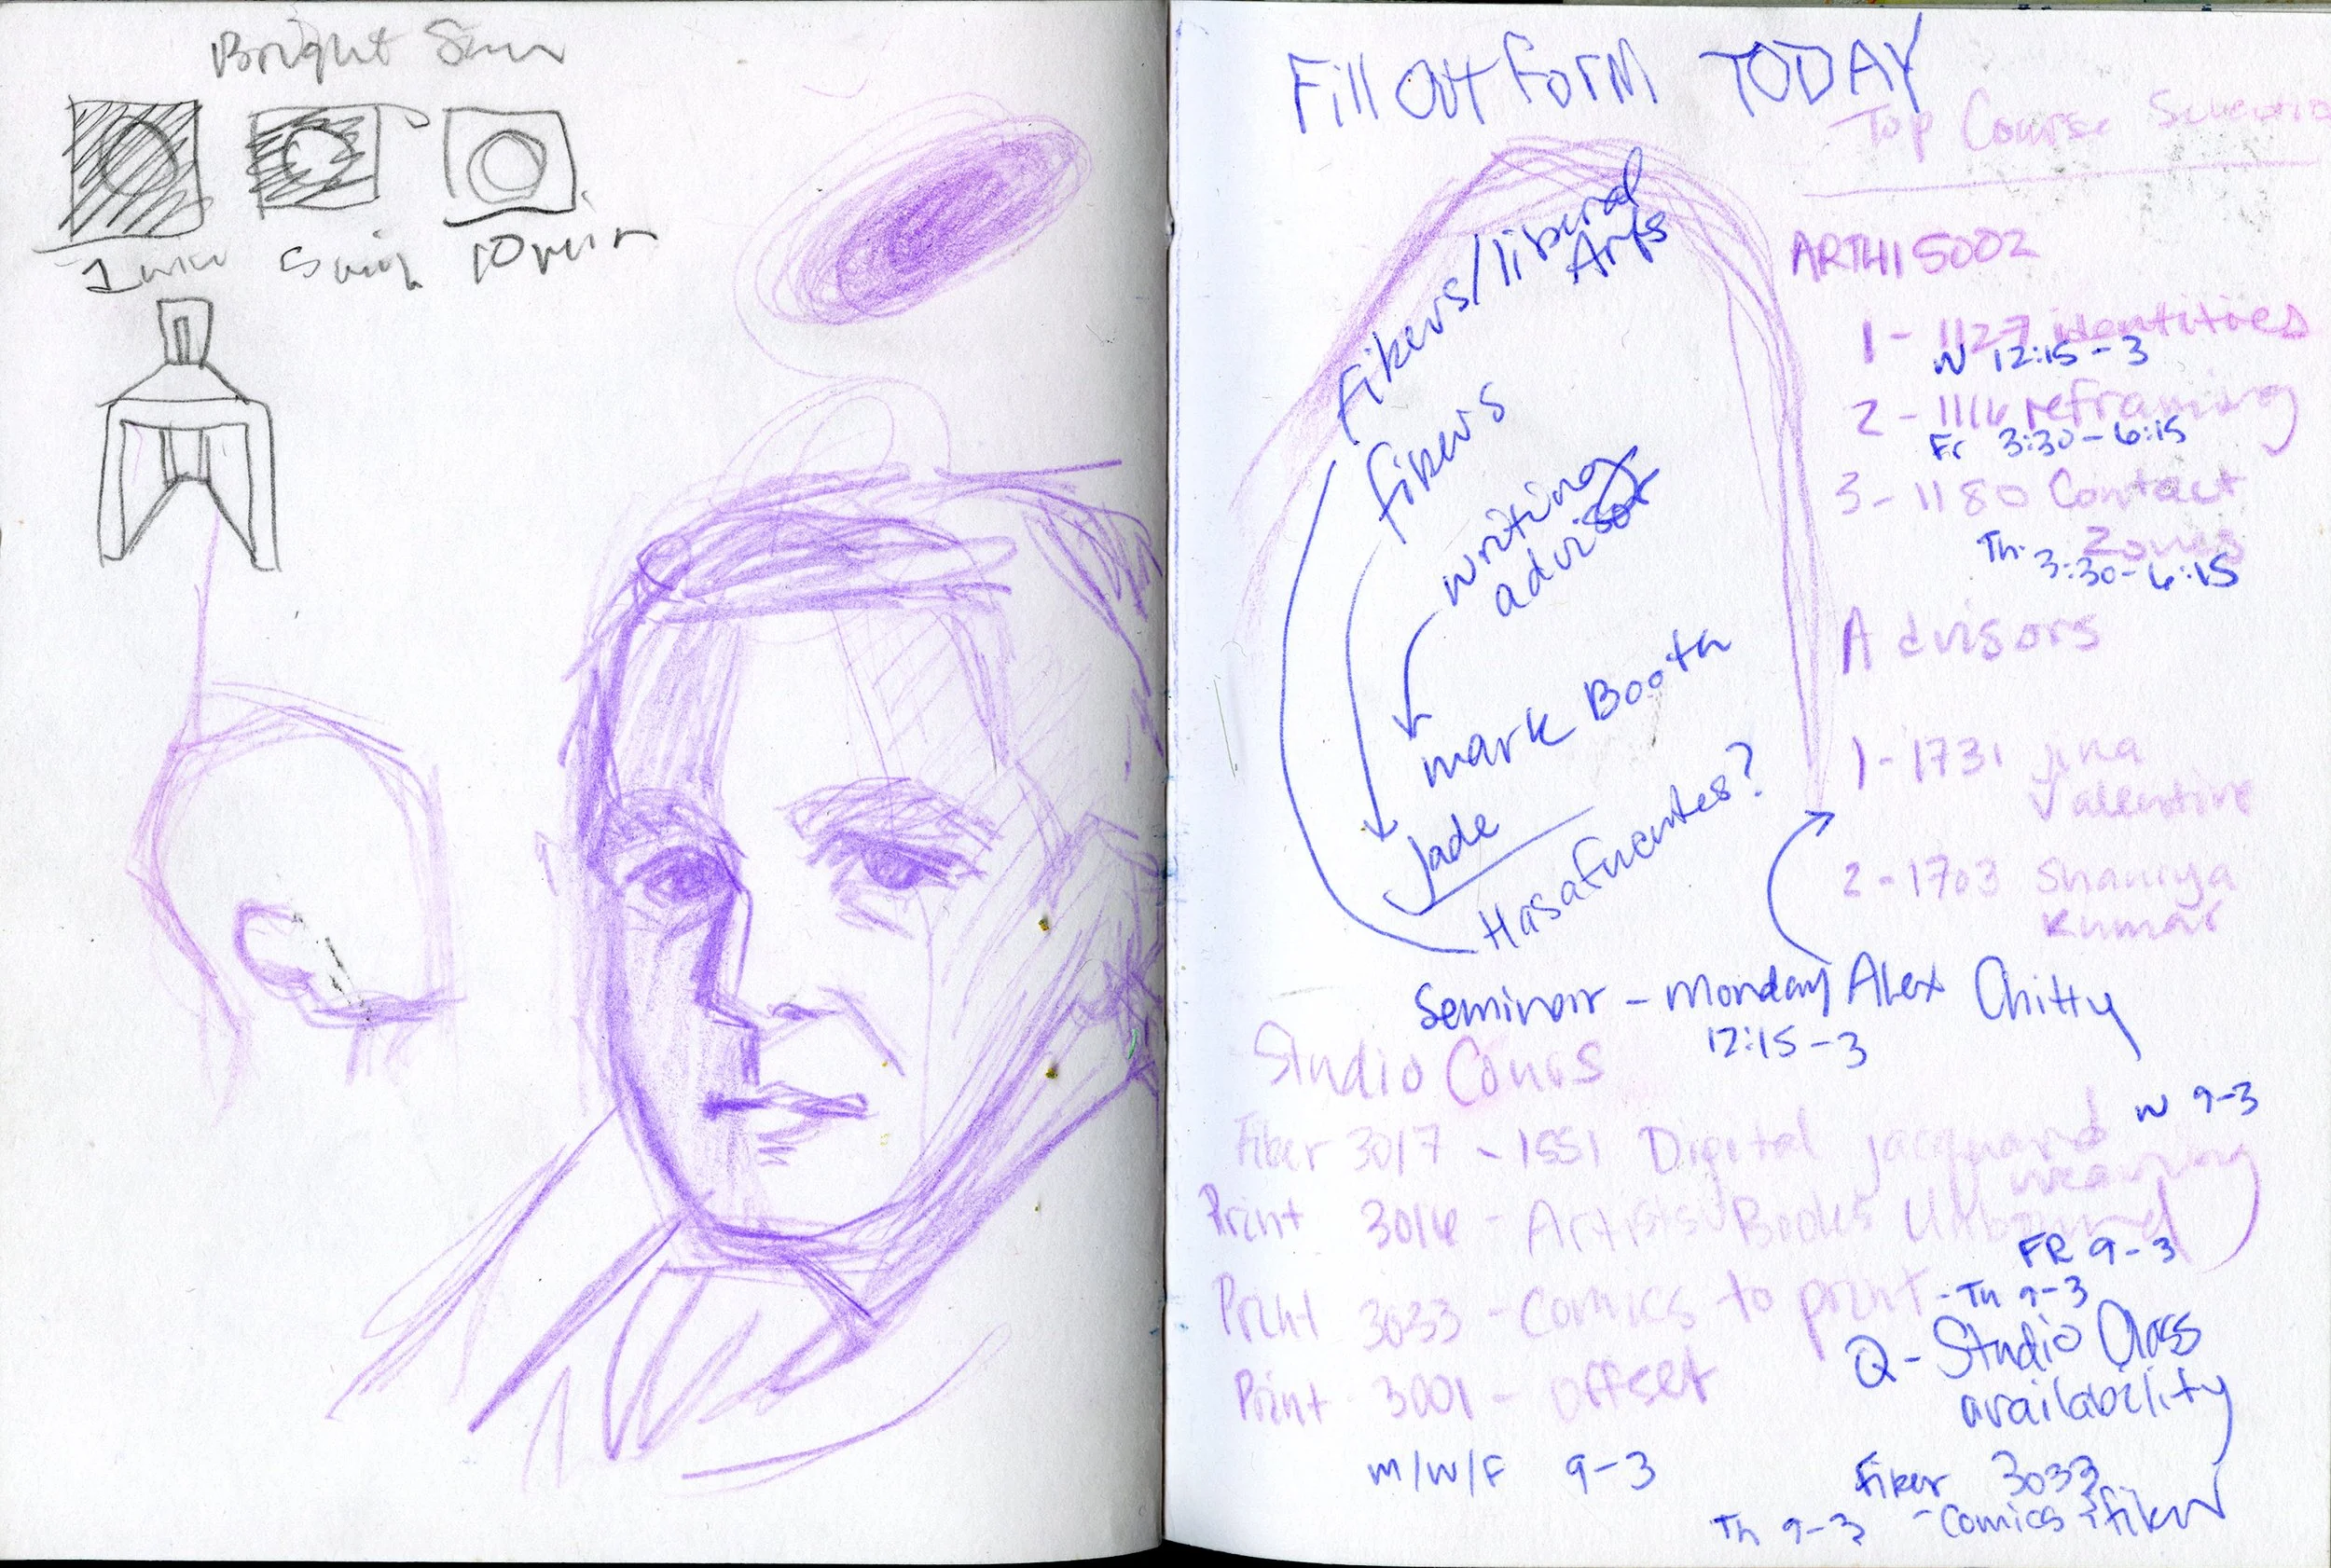 Bright Sun
1 min
5 min
10 min
Fill Out Form TODAY
Top Course
ARTHI 5002
1 - 1127 identities
W 12:15 - 3
2 - 1116 reframing
Fr 3:30 - 6:15
3 - 1180 Contact
Zones
Th. 3:30 - 6:15
Advisors
1 - 1731 jina
Valentine
2 - 1703 Shaurya
Kumar
liberal
Arts
writing
advisor
mark Booth
Jade
Hasafuentes?
Seminar - Monday Alex Chitty
12:15 - 3
Studio
W 9-3
Fiber 3017 - 1551 Digital jacquard
weaving
Print 3016 - Artists Books Unbound
FR 9-3
Print 3033 - Comics to print - Th 9-3
Q - Studio Class
availability
Print 3001 - offset
M/W/F 9-3
Fiber 3033
Th 9-3 - Comics